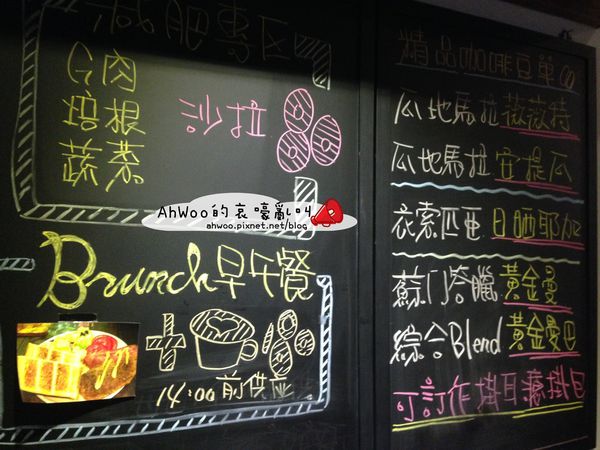 減肥專區
G肉
培根
蔬菜
沙拉
AhWoo的哀嚎亂叫
ahwoo.pixnet.net/blog
Brunch早午餐
+
14:00前供应
精品咖啡豆單
瓜地馬拉薇薇特
瓜地馬拉安提瓜
衣索匹亞日晒耶加
蘇门答臘黃金曼
綜合Blend黃金曼巴
可訂作掛耳濾掛包